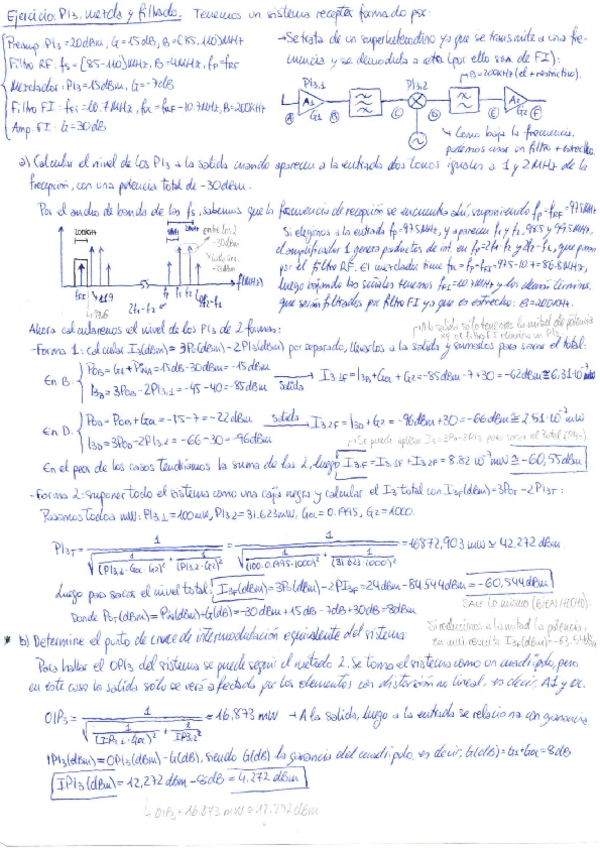 Ejercicio: PI3, mezcla y filtrado. Tenemos un sistema receptor formado por:
Preamp: PI3=20dBm, G=15dB, B=(85-110)MHz
Filtro RF: fs=(85-110)MHz, B=4MHz, fp=fRF
Mezclador: PI3=15dBm, G=-7dB
Filtro FI: fFI=10.7MHz, fOL=fRF-10.7MHz, B=200kHz
Amp. FI: G=30dB
→Se trata de un superheterodino ya que se transmite a una fre-
cuencia y se demodula a otra (por ello son de FI):
B=200kHz (el + restrictivo).
PI3,1 PI3,2
A A1 G1 B C D E A2 G2 F
Como baja la frecuencia,
podemos usar un filtro + estrecho.
a) Calcular el nivel de los PI3 a la salida cuando aparecen a la entrada dos tonos iguales a 1 y 2MHz de la
frecepción, con una potencia total de -30dBm.
Por el ancho de banda de los fs, sabemos que la frecuencia de recepción se encuentra ahí, suponiendo fp=fRF=97.5MHz
Si elegimos a la entrada fp=97.5MHz, y aparecen f1 y f2, 98.5 y 99.5MHz,
el amplificador 1 genera productos de int en fp=2f1-f2 y 2f2-f1, que pasan
por el filtro RF. El mezclador tiene fOL=fp-fFI=97.5-10.7=86.8MHz,
luego bajando las señales tenemos fFI=10.7MHz y los demás términos,
que serán filtrados por filtro FI ya que es estrecho: B=200kHz.
200kHz
entre los 2
-30dBm
f(MHz)
fFI 11.7 2f1-f2 f1 f2 2f2-f1
Ahora calcularemos el nivel de los PI3 de 2 formas:
-Forma 1: calcular I3(dBm)=3P0(dBm)-2PI3(dBm) por separado, llevarlos a la salida y sumarlos para sacar el total:
En B: POB=G1+PINA=15dB-30dBm=-15dBm
I3B=3POB-2PI3,1=-45-40=-85dBm salida → I3,1F=I3B+GOL+G2=-85dBm-7+30=-62dBm≅6.31·10⁻⁷mW
En D: POD=POB+GOL=-15-7=-22dBm salida → I3,2F=I3D+G2=-96dBm+30=-66dBm≅2.51·10⁻⁷mW
I3D=3POD-2PI3,2=-66-30=-96dBm
En el peor de los casos tendríamos la suma de los 2, luego I3F=I3,1F+I3,2F=8.82·10⁻⁷mW≅-60,55dBm
-Forma 2: suponer todo el sistema como una caja negra y calcular el I3 total con I3F(dBm)=3POT-2PI3T:
Pasamos todo a mW: PI3,1=100mW, PI3,2=31.623mW, GOL=0.1995, G2=1000.
PI3T= 1/√(1/(PI3,1·GOL·G2)²+1/(PI3,2·G2)²) = 1/√(1/(100·0.1995·1000)²+1/(31.623·1000)²) =16872,903mW≅42.272dBm
Luego para sacar el nivel total: I3F(dBm)=3P0(dBm)-2PI3F=24dBm-84.544dBm=-60,544dBm
Donde POT(dBm)=PIN(dBm)+G(dB)=-30dBm+15dB-7dB+30dB=8dBm
SALE LO MISMO (BIEN HECHO).
* b) Determine el punto de cruce de intermodulación equivalente del sistema:
Para hallar el OPI3 del sistema se puede seguir el método 2. Se toma el sistema como un cuadripolo, pero
en este caso la salida sólo se verá afectada por los elementos con distorsión no lineal, es decir, A1 y OL.
OIP3= 1/√(1/(IP3,1·GOL)²+1/(IP3,2)²) =16,873mW →A la salida, luego a la entrada se relaciona con ganancia.
IPI3(dBm)=OPI3(dBm)-G(dB), siendo G(dB) la ganancia del cuadripolo, es decir, G(dB)=G1+GOL=8dB
IPI3(dBm)=12,272dBm-8dB=4,272dBm
OIP3=16.873mW≅12.272dBm